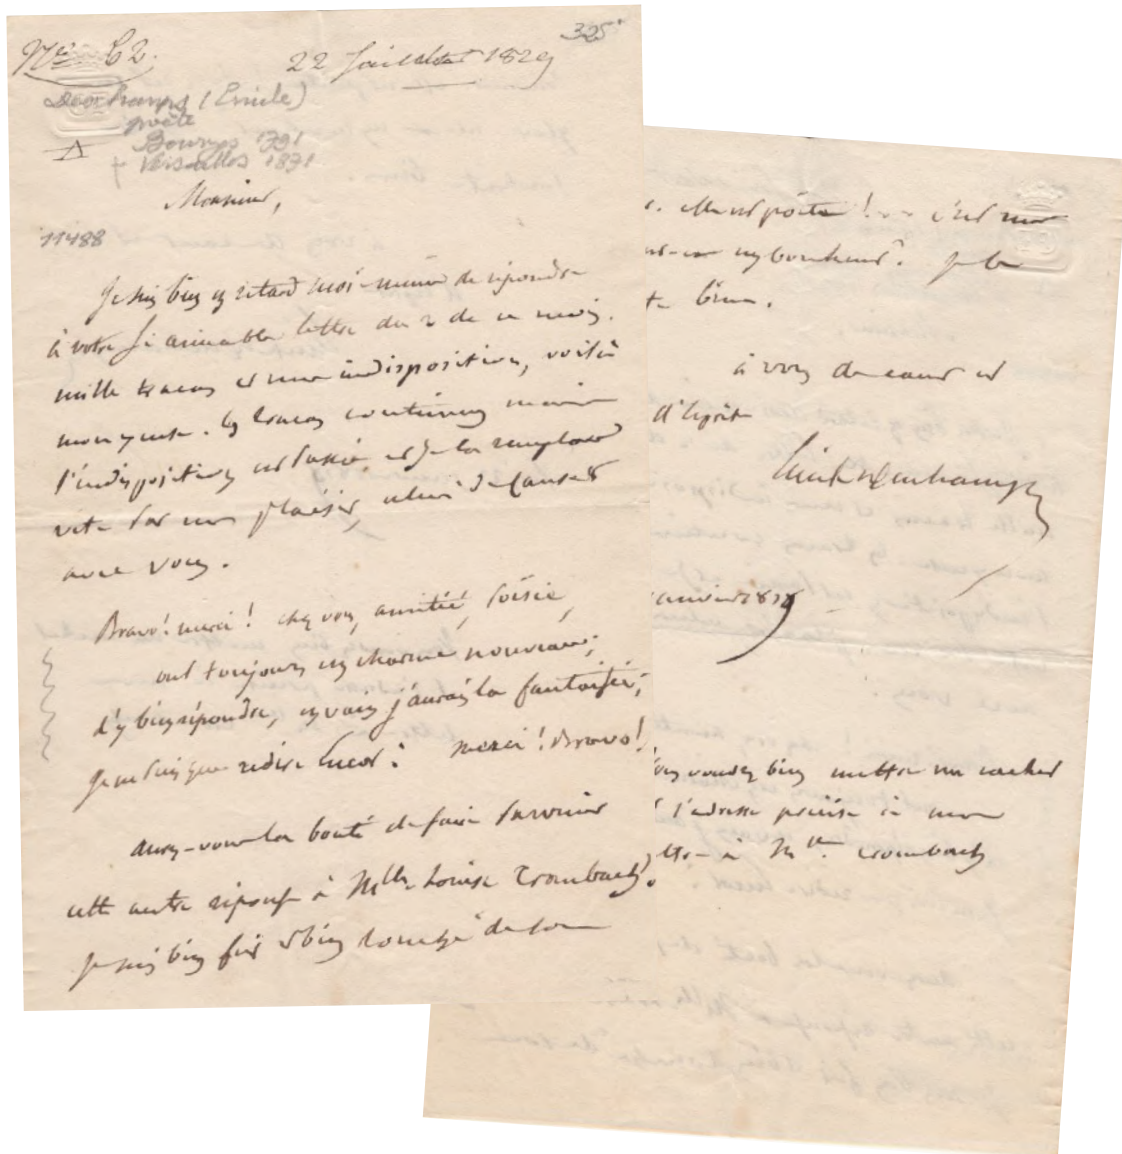 No 62.
22 Juillet 1829
325
Deschamps (Emile)
poète
Bourges 1791
+ Versailles 1871
Monsieur,
11488
Je suis bien en retard moi-même de répondre
à votre si aimable lettre du 2 de ce mois.
mille tracas et une indisposition, voilà
mon excuse. les tracas continuent mais
l'indisposition est passée et je la remplace
vite par un plaisir, celui de causer
avec vous.
Bravo! merci! chez vous, amitié, poésie,
ont toujours un charme nouveau;
d'y bien répondre, en vain j'aurais la fantaisie,
Je ne puis que redire encor: merci! Bravo!
Aurez-vous la bonté de faire parvenir
cette autre réponse à Mlle Louise Crombach?
Je suis bien fier et bien touché de son
elle est poète! c'est
un bonheur? Je le
bien.
à vous de cœur et
d'esprit
Emile Deschamps
voudrez bien mettre un cachet
l'adresse précise à
à Mlle. Crombach